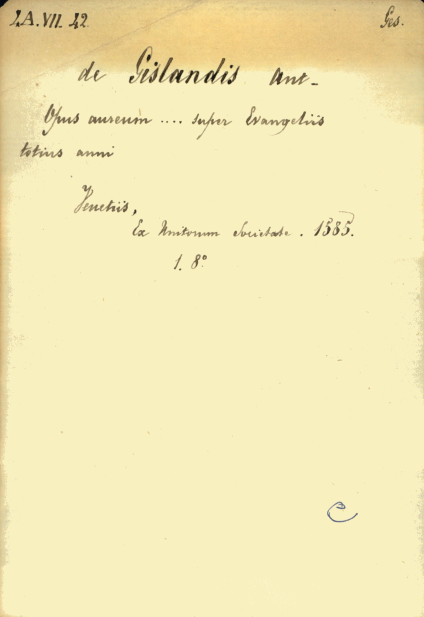 1.A.VII.42 Gis.
de Gislandis Ant-
Opus aureum .... super Evangeliis
totius anni
Venetiis,
Ex Unitorum Societate. 1585.
1. 8°
C